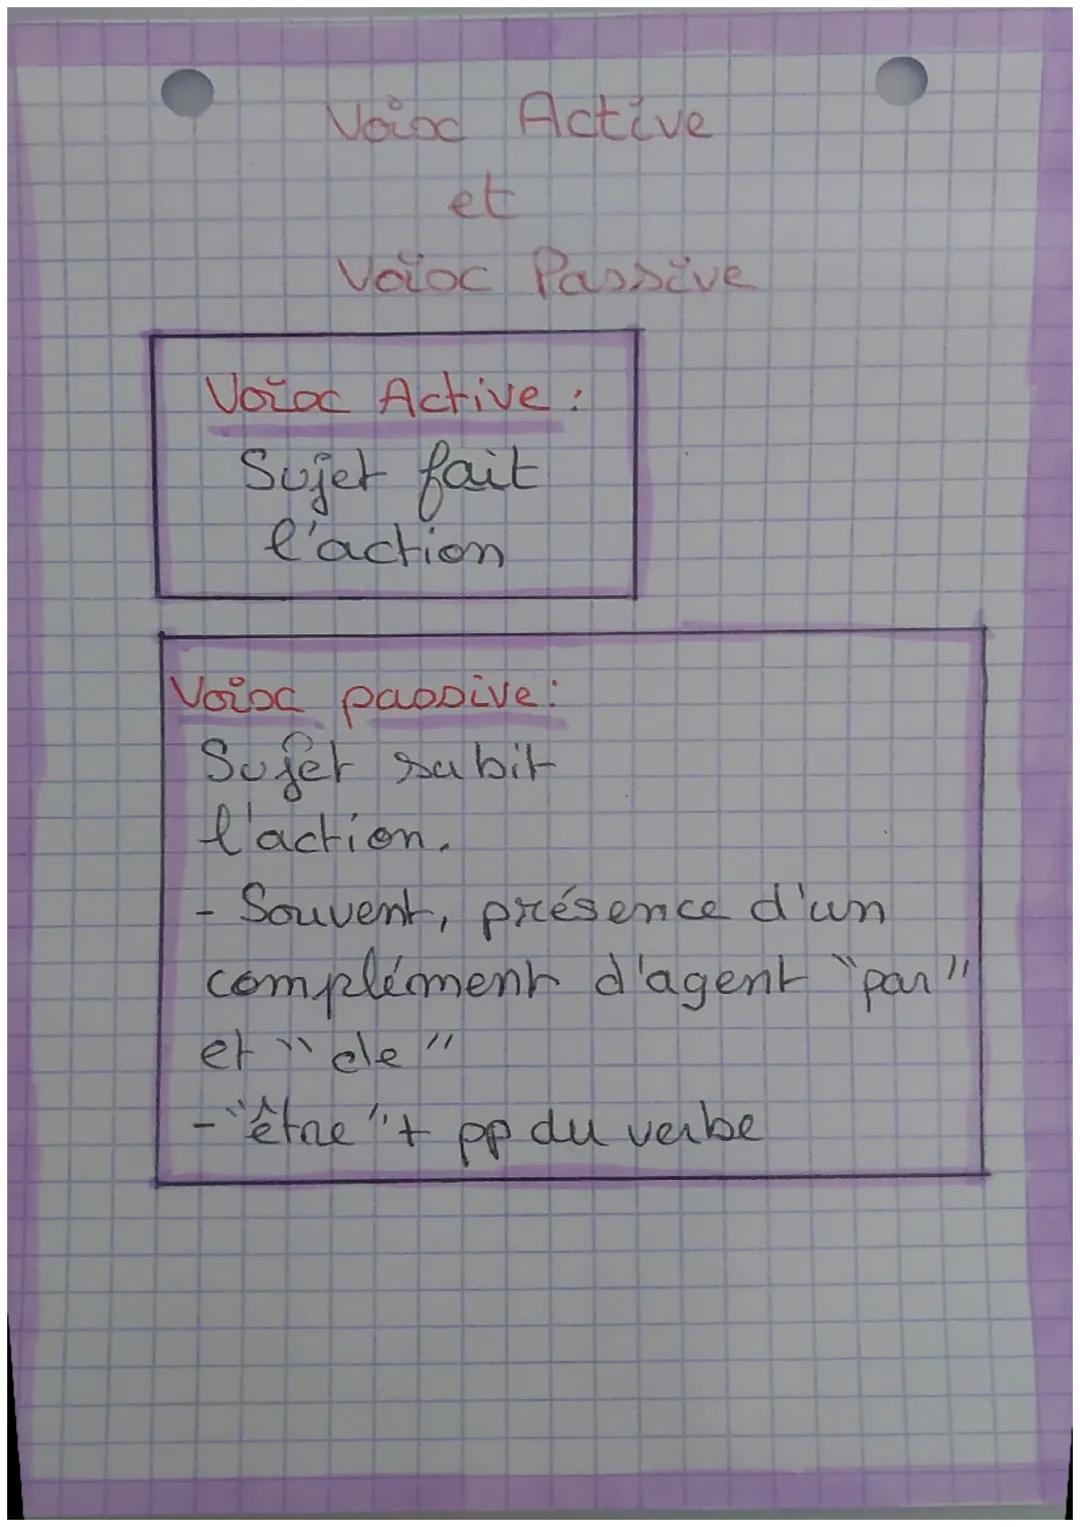 Voix Active
et
Voix Passive
Voix Active :
Sujet fait
l'action
Voix passive :
Sujet subit
l'action.
- Souvent, présence d'un
complément d'agent "par"
et "de"
- "être" + pp du verbe